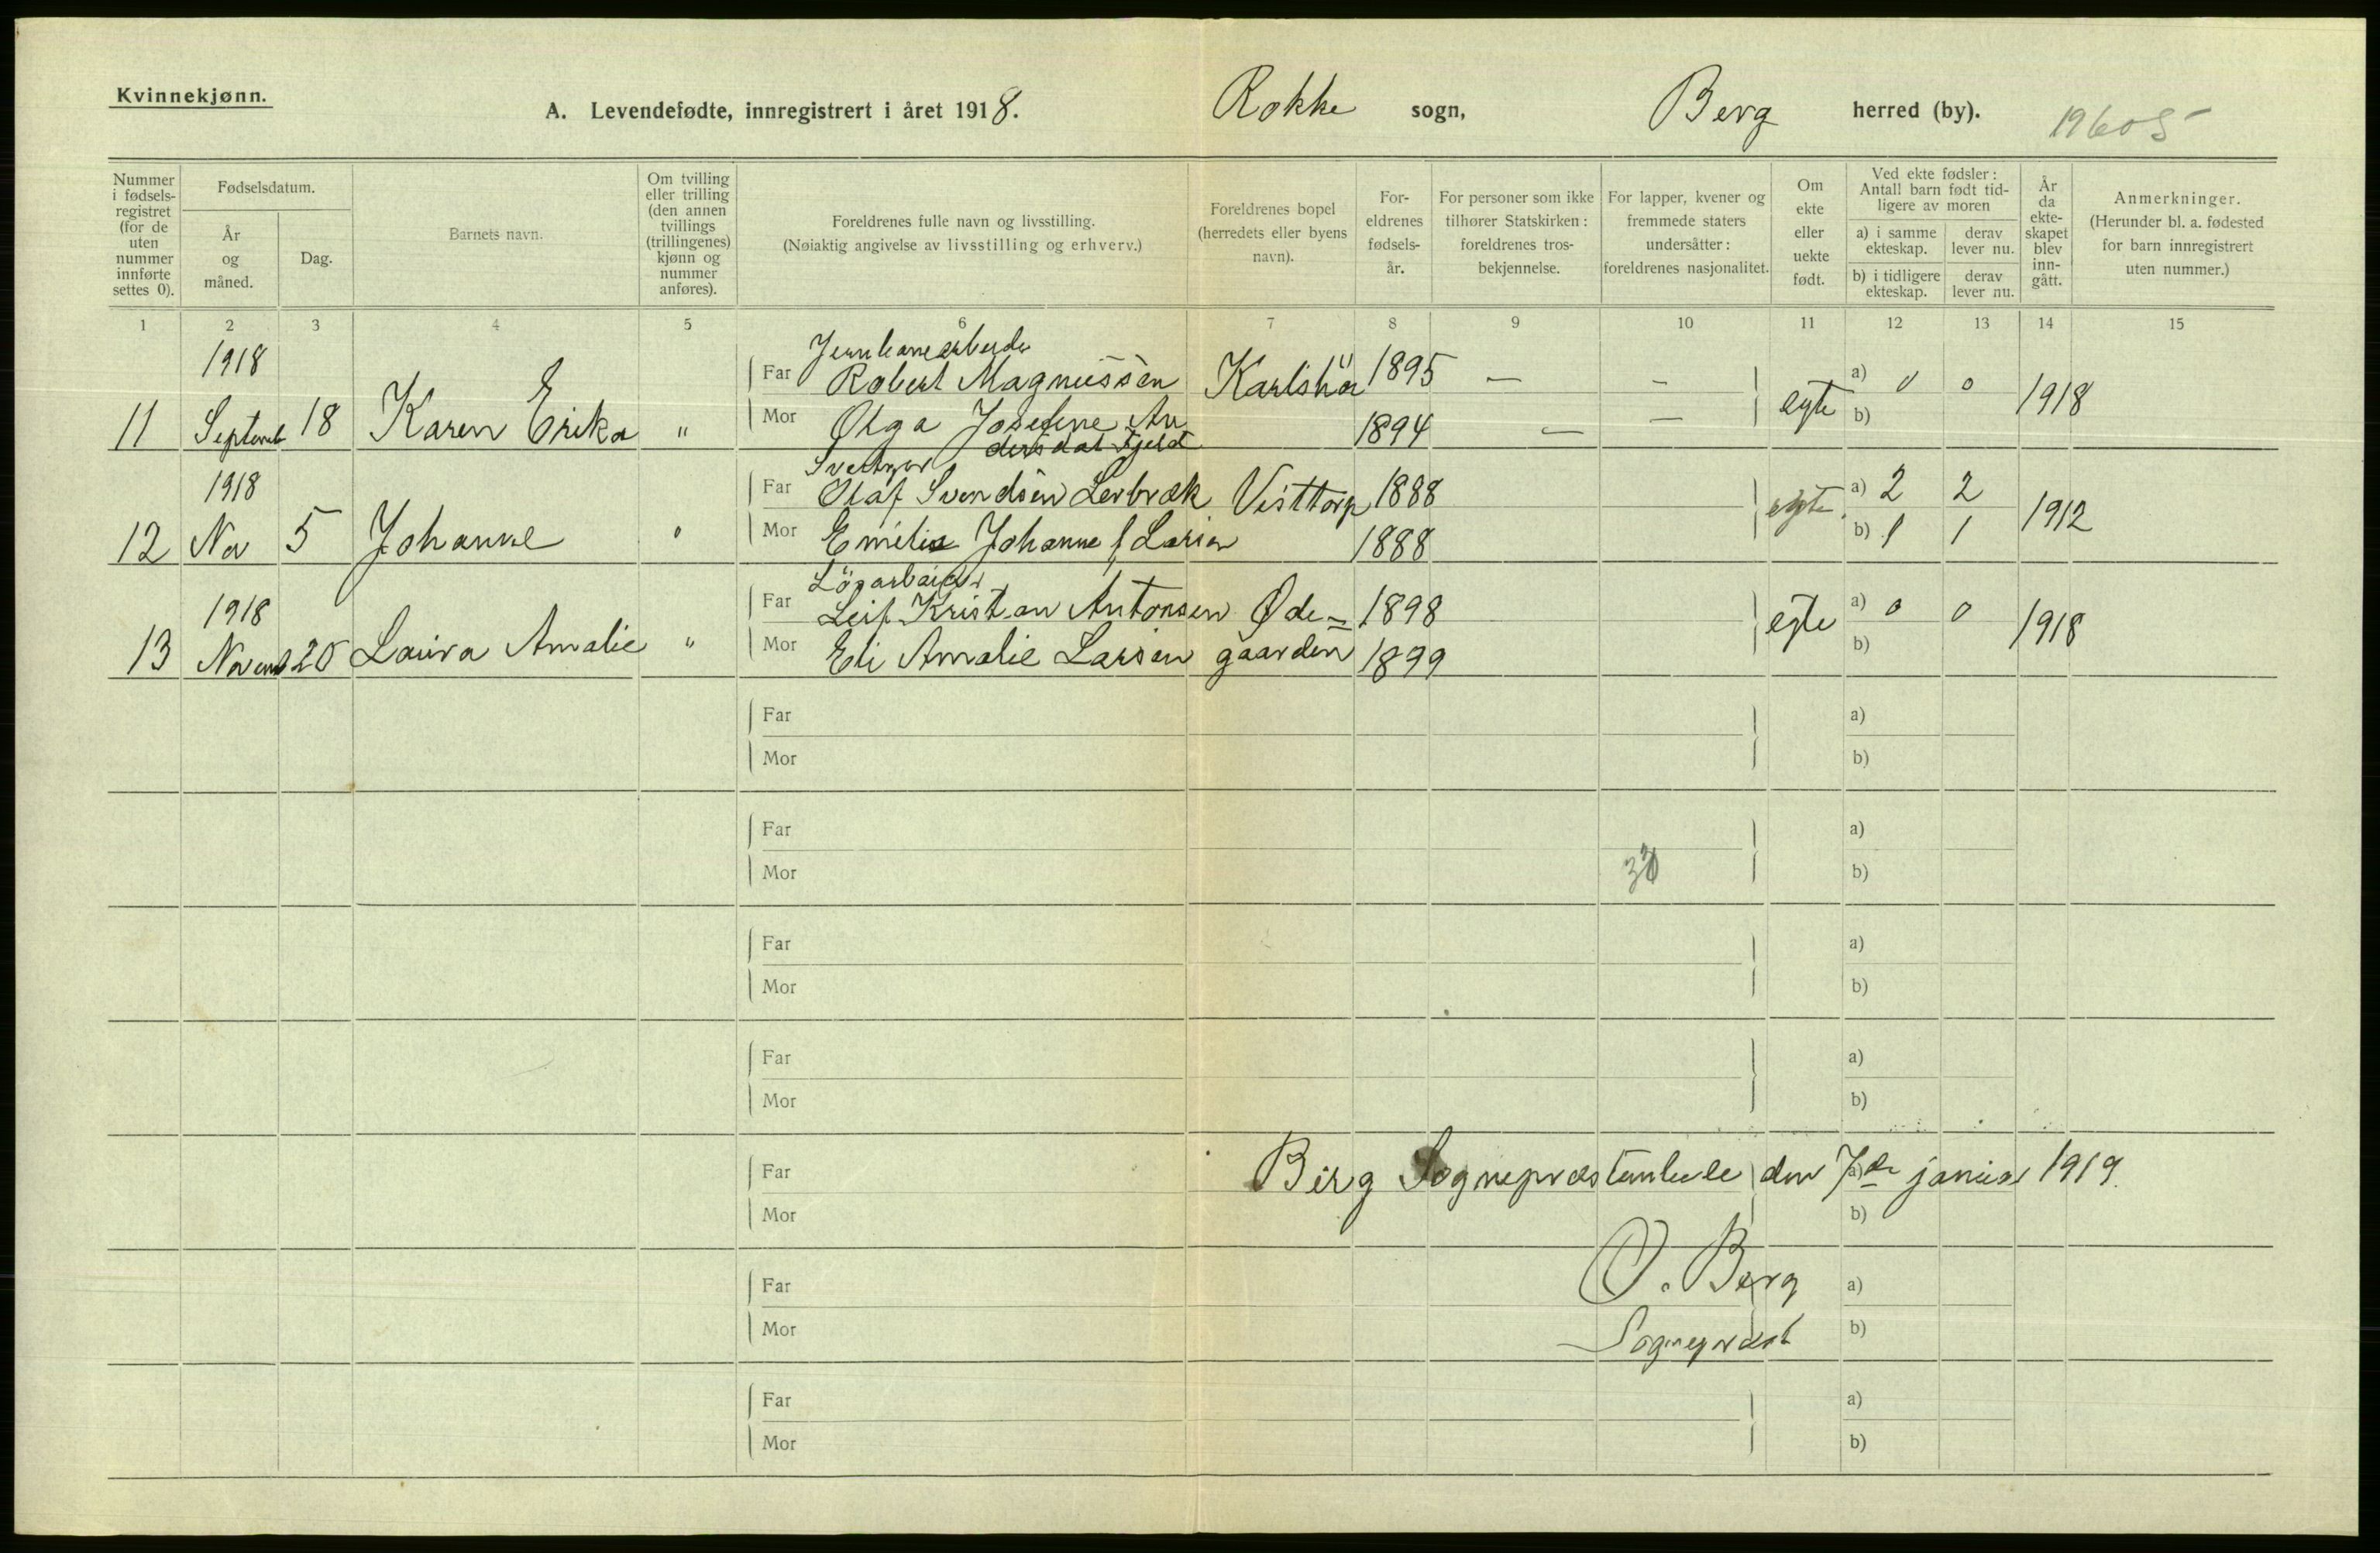 Kvinnekjønn.
A. Levendefødte, innregistrert i året 1918. Rokke sogn, Berg herred (by). 19605
Nummer i fødselsregistret (for de uten nummer innførte settes 0).
Fødselsdatum.
År og måned.
Dag.
Barnets navn.
Om tvilling eller trilling (den annen tvillings (trillingenes) kjønn og nummer anføres).
Foreldrenes fulle navn og livsstilling.
(Nøiaktig angivelse av livsstilling og erhverv.)
Foreldrenes bopel (herredets eller byens navn).
Foreldrenes fødselsår.
For personer som ikke tilhører Statskirken: foreldrenes trosbekjennelse.
For lapper, kvener og fremmede staters undersåtter: foreldrenes nasjonalitet.
Om ekte eller uekte født.
Ved ekte fødsler: Antall barn født tidligere av moren
a) i samme ekteskap. derav lever nu.
b) i tidligere ekteskap. derav lever nu.
År da ekteskapet blev inngått.
Anmerkninger.
(Herunder bl. a. fødested for barn innregistrert uten nummer.)
1 2 3 4 5 6 7 8 9 10 11 12 13 14 15
1918 Jernbanearbeider
Far Robert Magnussen Karlshus 1895 — — a) 0 0
11 Septemb 18 Karen Erika " Mor Olga Josefine An 1894 — — egte b) 1918
dersdat Fjeld
1918
Far Olaf Svendsen Lerbræk Visttorp 1888 a) 2 2
12 Nov 5 Johanne " Mor Emilie Johanne f Larsen 1888 egte b) 1 1 1912
1918 Løsarbeider
Far Leif Kristian Antonsen Øde= 1898 a) 0 0
13 Novemb 20 Laura Amalie " Mor Eli Amalie Larsen gaarden 1899 egte b) 1918
Far a)
Mor b)
Far a)
Mor 30 b)
Far a)
Mor b)
Far a)
Mor b)
Far Berg Sogneprestembede den 7de januar 1919. a)
Mor b)
Far O. Berg a)
Mor Sogneprest b)
Far a)
Mor b)